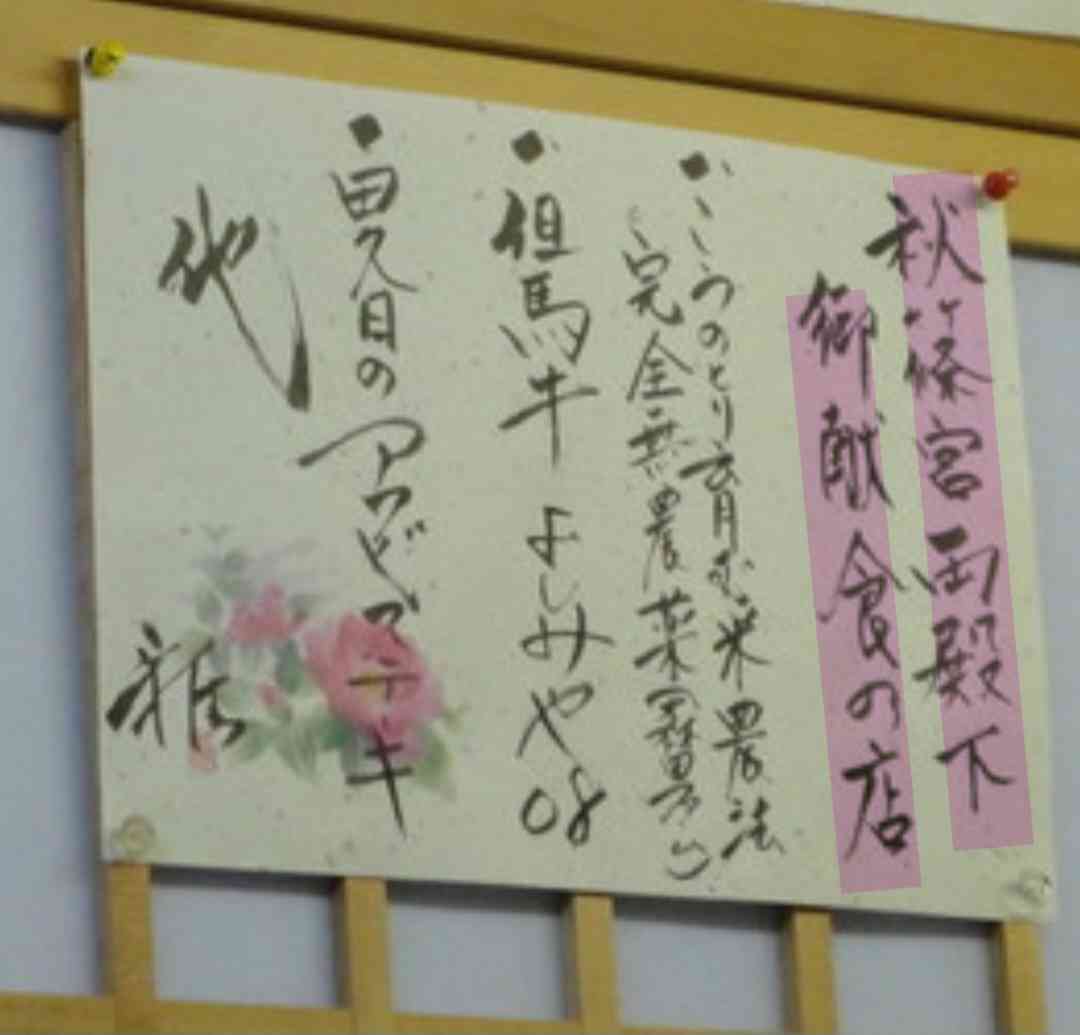 秋篠宮両殿下
御献食の店
・こうのとり育む米農法
(完全無農薬
・但馬牛 よしみや
・田久日のアワビステーキ
他
雅